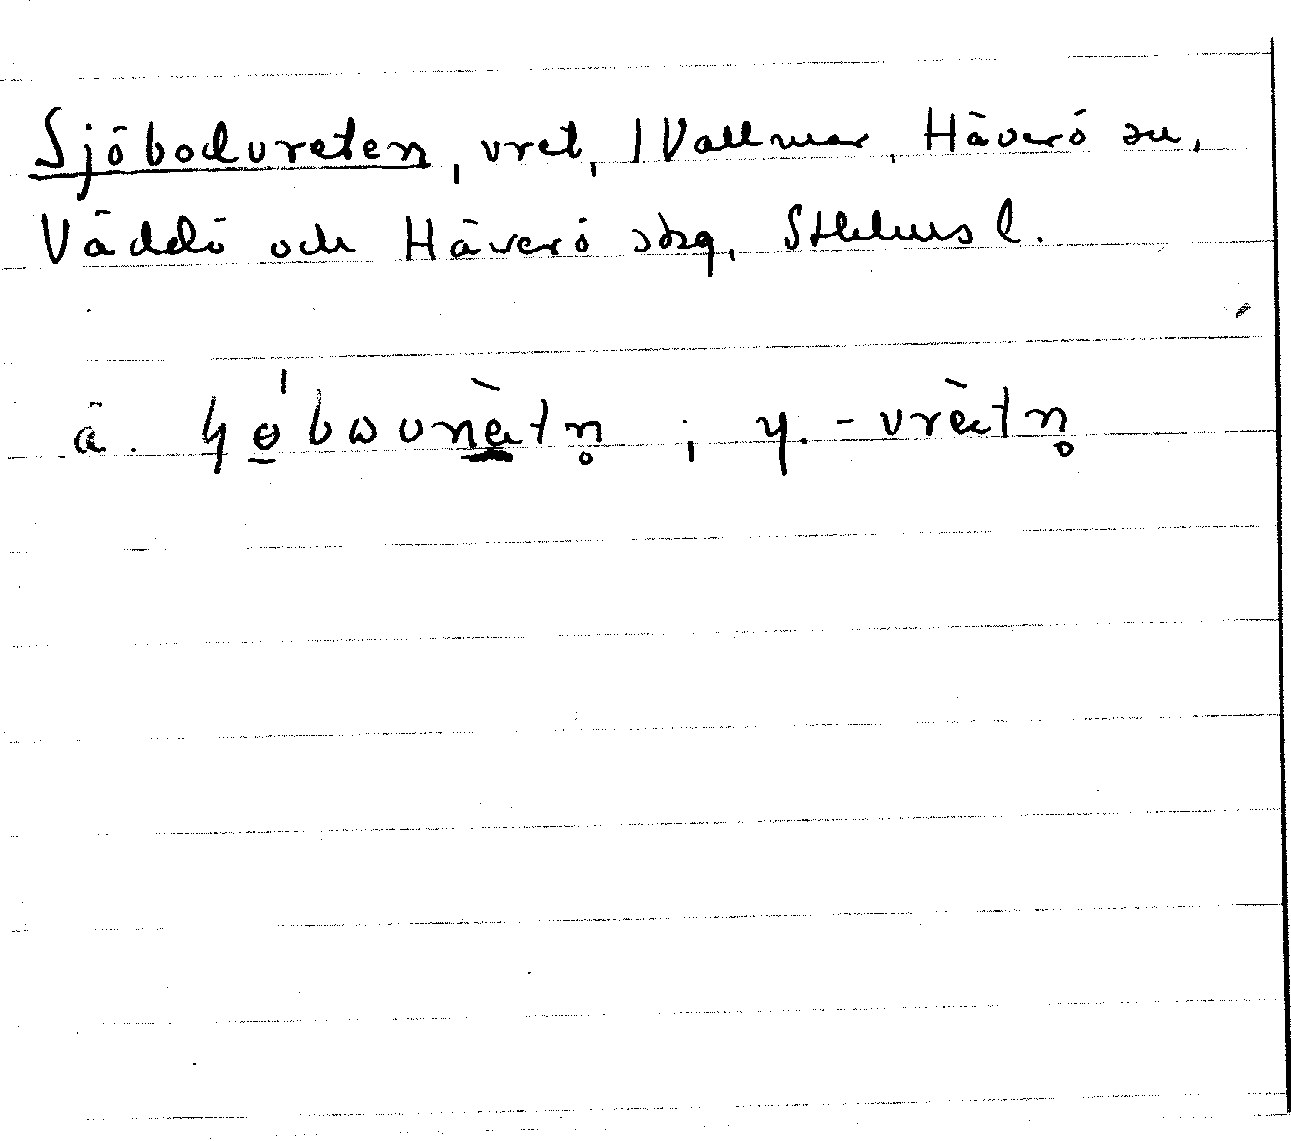 Sjöbodvreten, vret, I Vallmar, Häverö sn,
Väddö och Häverö skg, Sthlms l.
ä. ; y. - vrètn̥